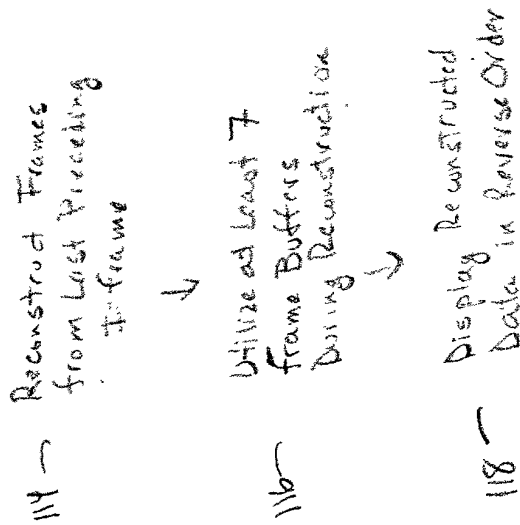 114 Reconstruct Frames
from Last Preceding
I-frame
116 Utilize at Least 7
Frame Buffers
During Reconstruction
118 Display Reconstructed
Data in Reverse Order